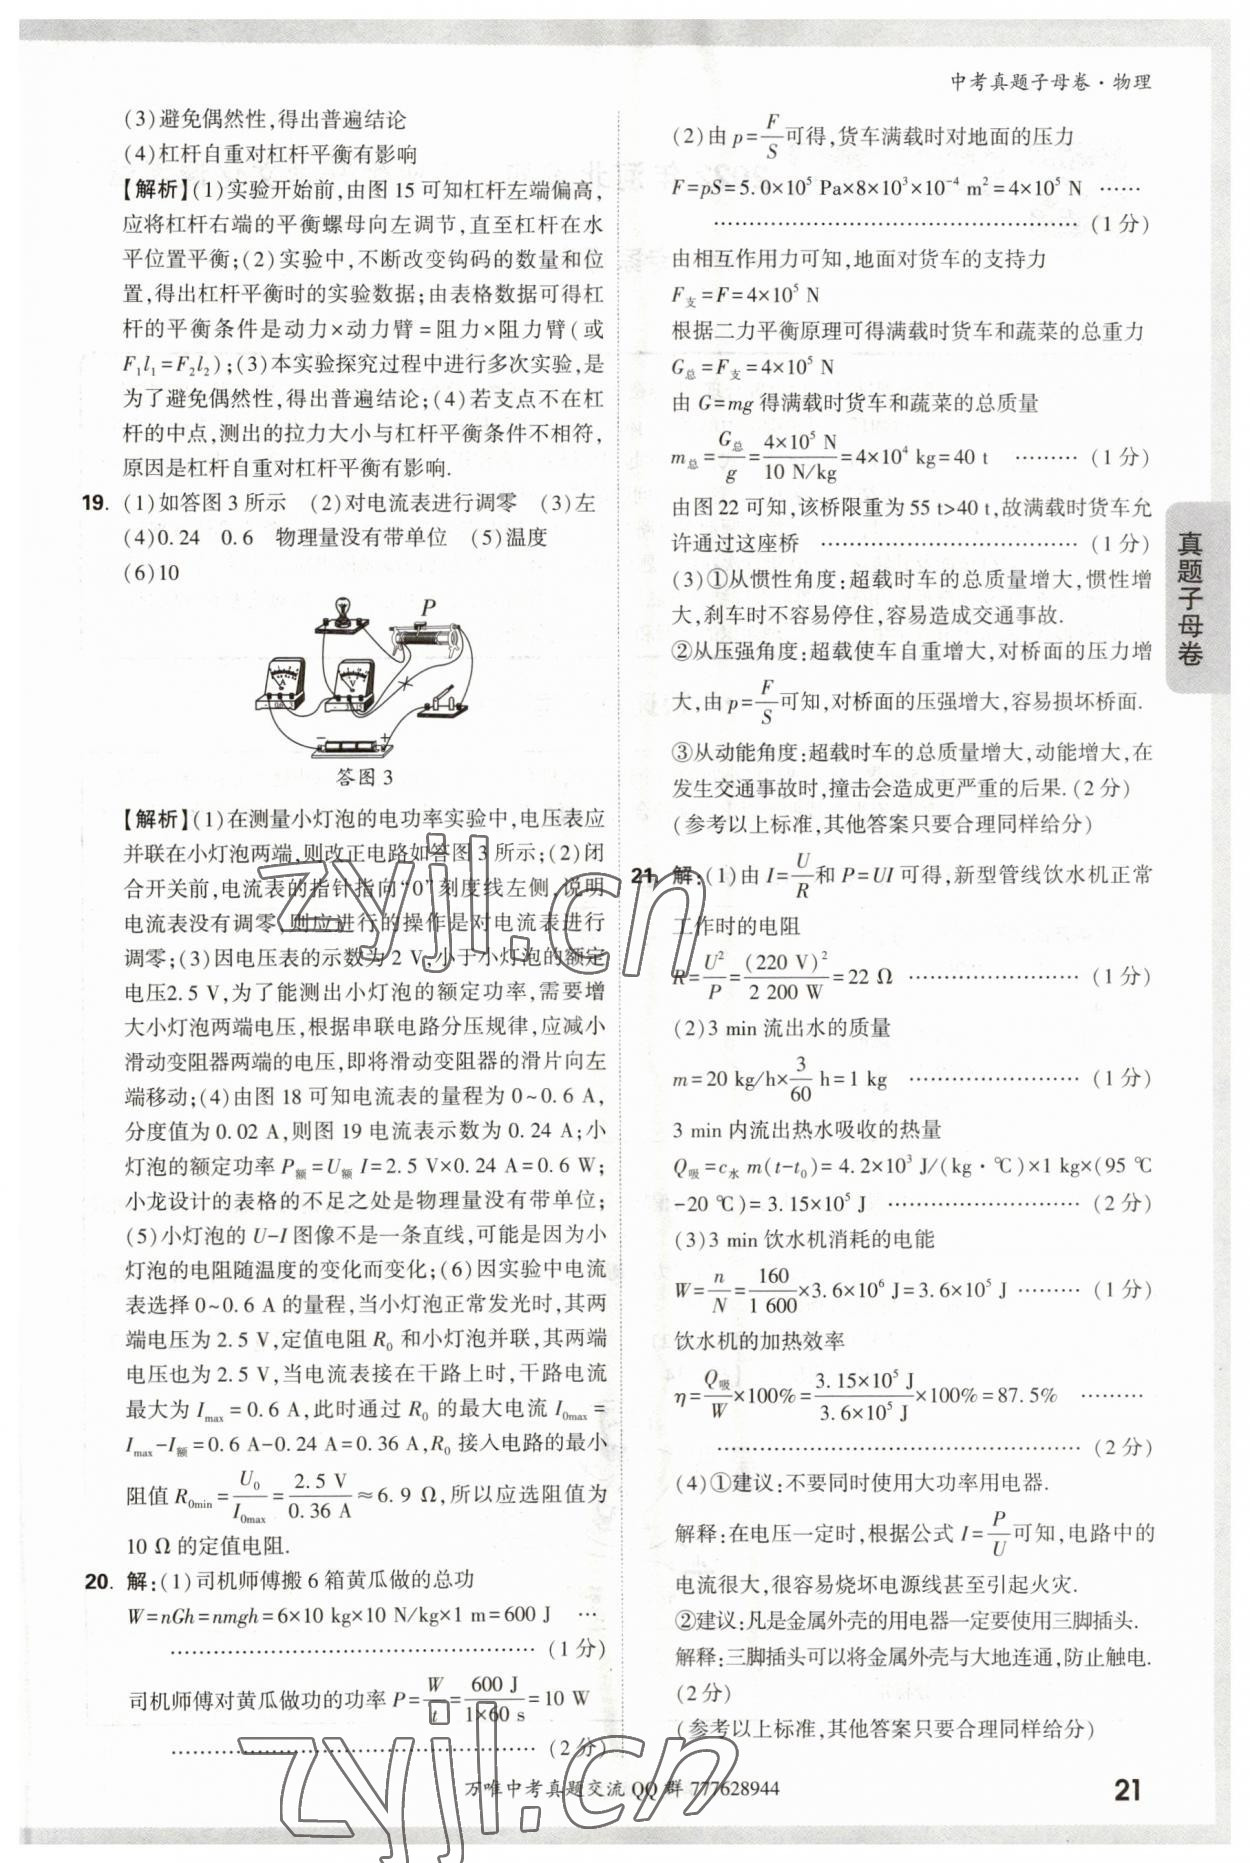 中考真题子母卷·物理
(3)避免偶然性,得出普遍结论
(4)杠杆自重对杠杆平衡有影响
【解析】(1)实验开始前,由图 15 可知杠杆左端偏高,
应将杠杆右端的平衡螺母向左调节,直至杠杆在水
平位置平衡;(2)实验中,不断改变钩码的数量和位
置,得出杠杆平衡时的实验数据;由表格数据可得杠
杆的平衡条件是动力×动力臂=阻力×阻力臂(或
F₁l₁=F₂l₂);(3)本实验探究过程中进行多次实验,是
为了避免偶然性,得出普遍结论;(4)若支点不在杠
杆的中点,测出的拉力大小与杠杆平衡条件不相符,
原因是杠杆自重对杠杆平衡有影响.
19. (1)如答图 3 所示 (2)对电流表进行调零 (3)左
(4)0.24 0.6 物理量没有带单位 (5)温度
(6)10
P
A
V
− +
答图 3
【解析】(1)在测量小灯泡的电功率实验中,电压表应
并联在小灯泡两端,则改正电路如答图 3 所示;(2)闭
合开关前,电流表的指针指向“0”刻度线左侧,说明
电流表没有调零,则应进行的操作是对电流表进行
调零;(3)因电压表的示数为 2 V,小于小灯泡的额定
电压2.5 V,为了能测出小灯泡的额定功率,需要增
大小灯泡两端电压,根据串联电路分压规律,应减小
滑动变阻器两端的电压,即将滑动变阻器的滑片向左
端移动;(4)由图 18 可知电流表的量程为 0~0.6 A,
分度值为 0.02 A,则图 19 电流表示数为 0.24 A;小
灯泡的额定功率 P额=U额 I=2.5 V×0.24 A=0.6 W;
小龙设计的表格的不足之处是物理量没有带单位;
(5)小灯泡的 U-I 图像不是一条直线,可能是因为小
灯泡的电阻随温度的变化而变化;(6)因实验中电流
表选择 0~0.6 A 的量程,当小灯泡正常发光时,其两
端电压为 2.5 V,定值电阻 R₀ 和小灯泡并联,其两端
电压也为 2.5 V,当电流表接在干路上时,干路电流
最大为 Imax=0.6 A,此时通过 R₀ 的最大电流 I0max=
Imax-I额=0.6 A-0.24 A=0.36 A,R₀ 接入电路的最小
阻值 R0min=U₀/I0max=2.5 V/0.36 A≈6.9 Ω,所以应选阻值为
10 Ω 的定值电阻.
20. 解:(1)司机师傅搬 6 箱黄瓜做的总功
W=nGh=nmgh=6×10 kg×10 N/kg×1 m=600 J …
……………………………… (1 分)
司机师傅对黄瓜做功的功率 P=W/t=600 J/1×60 s=10 W
……………………………… (2 分)
(2)由 p=F/S可得,货车满载时对地面的压力
F=pS=5.0×10⁵ Pa×8×10³×10⁻⁴ m²=4×10⁵ N ……
……………………………… (1 分)
由相互作用力可知,地面对货车的支持力
F支=F=4×10⁵ N
根据二力平衡原理可得满载时货车和蔬菜的总重力
G总=F支=4×10⁵ N
由 G=mg 得满载时货车和蔬菜的总质量
m总=G总/g=4×10⁵ N/10 N/kg=4×10⁴ kg=40 t ……… (1 分)
由图 22 可知,该桥限重为 55 t>40 t,故满载时货车允
许通过这座桥 ……………………… (1 分)
(3)①从惯性角度:超载时车的总质量增大,惯性增
大,刹车时不容易停住,容易造成交通事故.
②从压强角度:超载使车自重增大,对桥面的压力增
大,由 p=F/S可知,对桥面的压强增大,容易损坏桥面.
③从动能角度:超载时车的总质量增大,动能增大,在
发生交通事故时,撞击会造成更严重的后果.(2 分)
(参考以上标准,其他答案只要合理同样给分)
21. 解:(1)由 I=U/R和 P=UI 可得,新型管线饮水机正常
工作时的电阻
R=U²/P=(220 V)²/2 200 W=22 Ω ……………… (1 分)
(2)3 min 流出水的质量
m=20 kg/h×3/60 h=1 kg ……………… (1 分)
3 min 内流出热水吸收的热量
Q吸=c水 m(t-t₀)=4.2×10³ J/(kg·℃)×1 kg×(95 ℃
-20 ℃)=3.15×10⁵ J ………………… (2 分)
(3)3 min 饮水机消耗的电能
W=n/N=160/1 600×3.6×10⁶ J=3.6×10⁵ J ……… (1 分)
饮水机的加热效率
η=Q吸/W×100%=3.15×10⁵ J/3.6×10⁵ J×100%=87.5% ………
……………………………… (2 分)
(4)①建议:不要同时使用大功率用电器.
解释:在电压一定时,根据公式 I=P/U可知,电路中的
电流很大,很容易烧坏电源线甚至引起火灾.
②建议:凡是金属外壳的用电器一定要使用三脚插头.
解释:三脚插头可以将金属外壳与大地连通,防止触电.
(2 分)
(参考以上标准,其他答案只要合理同样给分)
真题子母卷
zyjl.cn
zyjl.cn
万唯中考真题交流 QQ 群 777628944
21